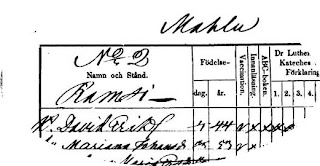 Mahlu
No 2
Namn och Stånd.
Födelse-
dag. år.
Vaccination.
Innanläsning.
ABC-boken.
Dr Luther
Kateches
Förklaring
1. 2. 3. 4.
Ramsi
David Erik 44
Mariana 53